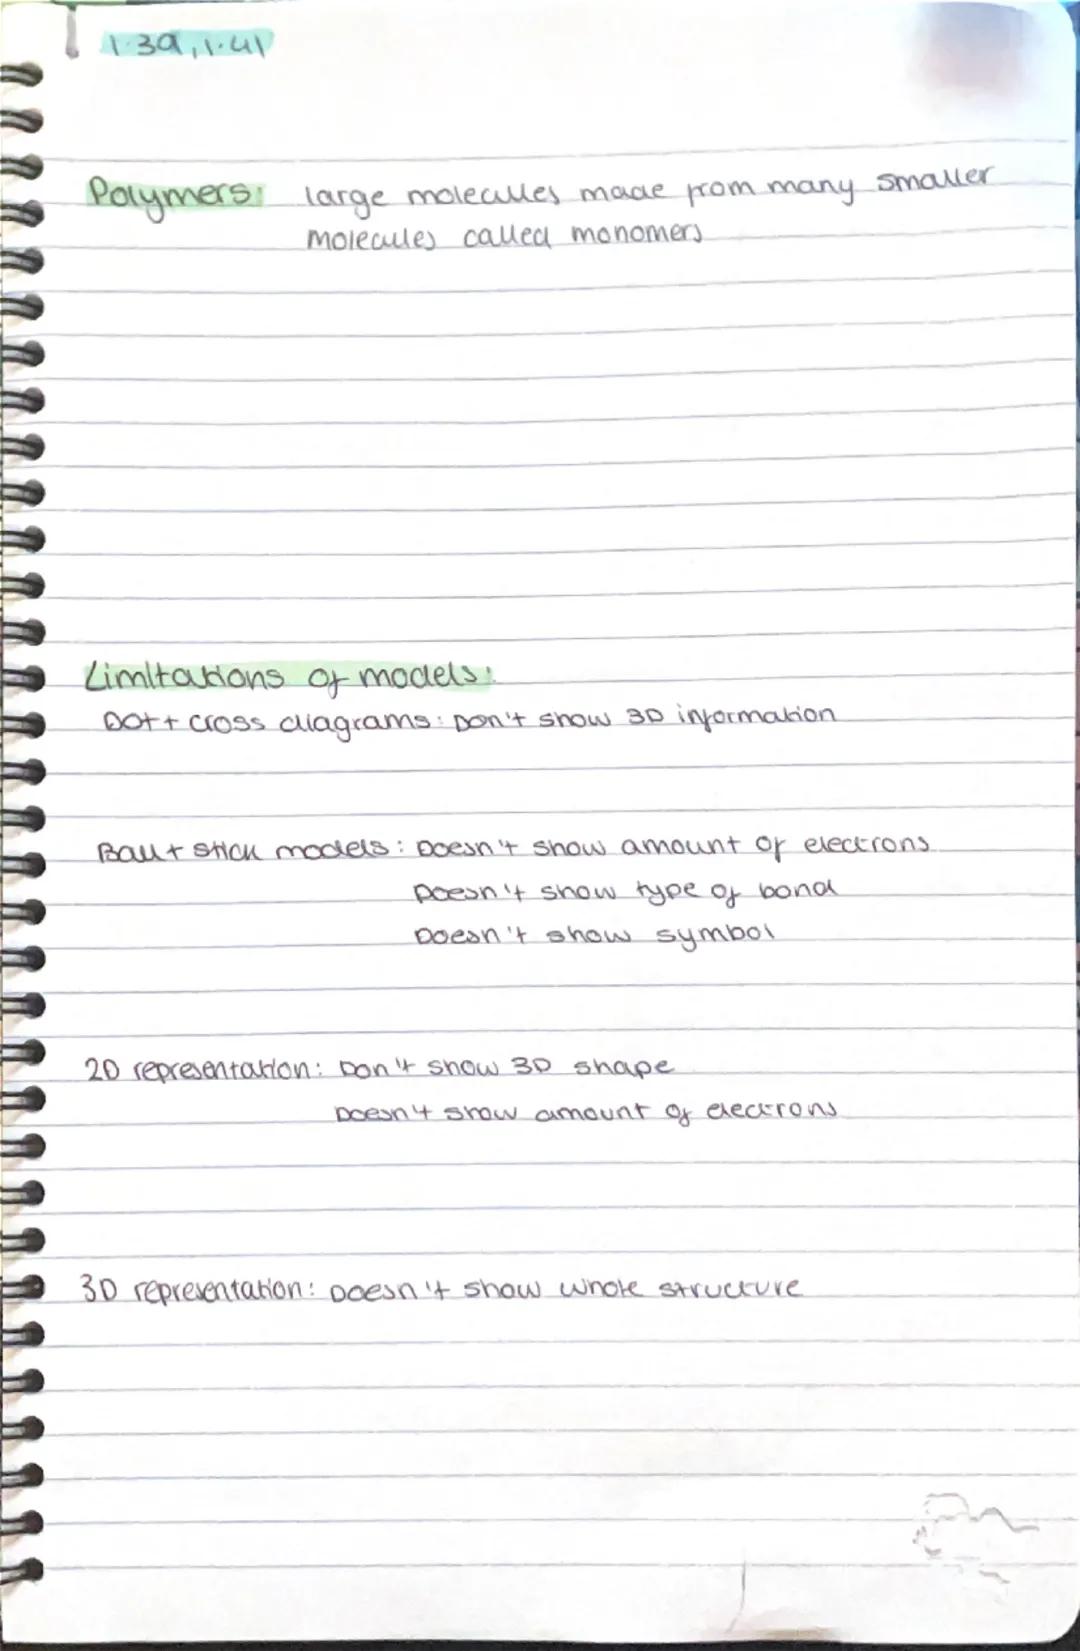 1.39, 1.41
Polymers: large molecules made from many smaller
molecules called monomers
Limitations of models:
Dot + cross diagrams: Don't show 3D information
Ball + stick models: Doesn't show amount of electrons
Doesn't show type of bond
Doesn't show symbol
2D representation: Don't show 3D shape
Doesn't show amount of electrons
3D representation: Doesn't show whole structure